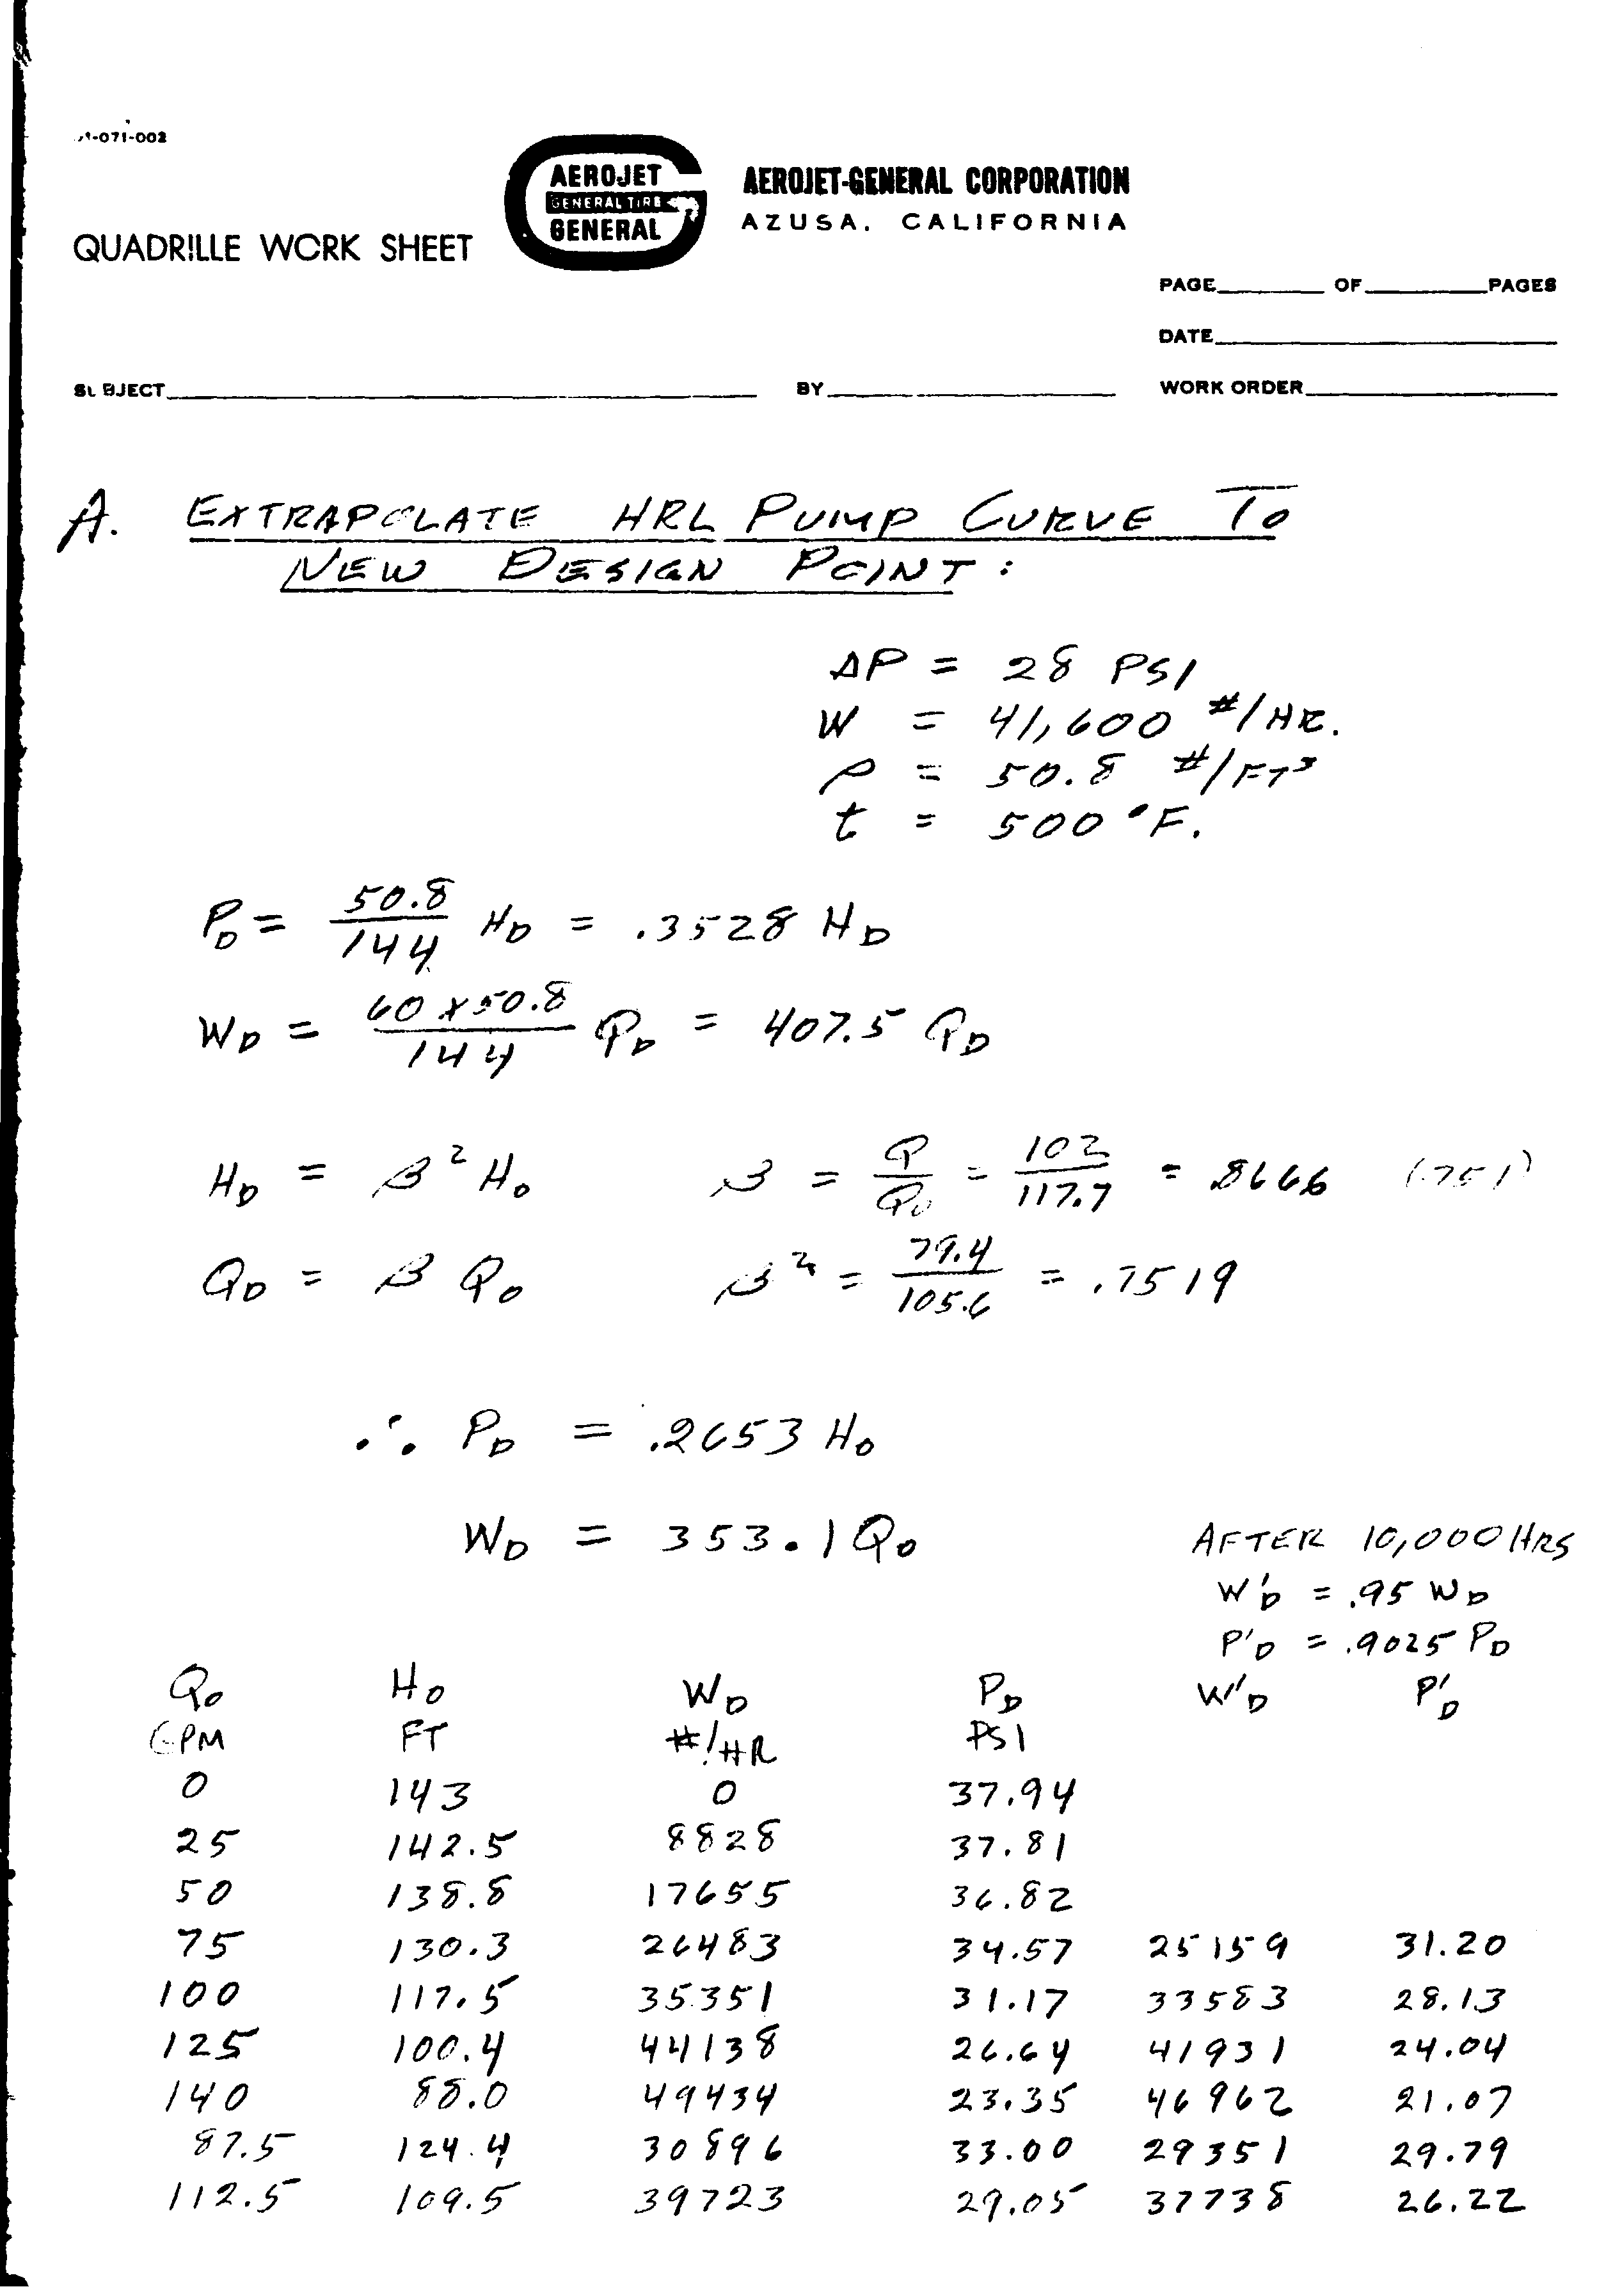 1-071-002
AEROJET
GENERAL TIRE
GENERAL
AEROJET-GENERAL CORPORATION
AZUSA, CALIFORNIA
QUADRILLE WORK SHEET
PAGE OF PAGES
DATE
SUBJECT BY WORK ORDER
A. EXTRAPOLATE HRL PUMP CURVE TO
NEW DESIGN POINT:
ΔP = 28 PSI
W = 41,600 #/HR.
ρ = 50.8 #/FT³
t = 500 °F.
P_D = 50.8/144 H_D = .3528 H_D
W_D = 60 x 50.8/144 Q_D = 407.5 Q_D
H_D = β² H_o β = Q/Q_o = 102/117.7 = .8666 (.751)
Q_D = β Q_o β² = 79.4/105.6 = .7519
∴ P_D = .2653 H_o
W_D = 353.1 Q_o
AFTER 10,000 HRS
W'_D = .95 W_D
P'_D = .9025 P_D
Q_o H_o W_D P_D W'_D P'_D
GPM FT #/HR PSI
0 143 0 37.94
25 142.5 8828 37.81
50 138.8 17655 36.82
75 130.3 26483 34.57 25159 31.20
100 117.5 35351 31.17 33583 28.13
125 100.4 44138 26.64 41931 24.04
140 88.0 49434 23.35 46962 21.07
87.5 124.4 30896 33.00 29351 29.79
112.5 109.5 39723 29.05 37738 26.22